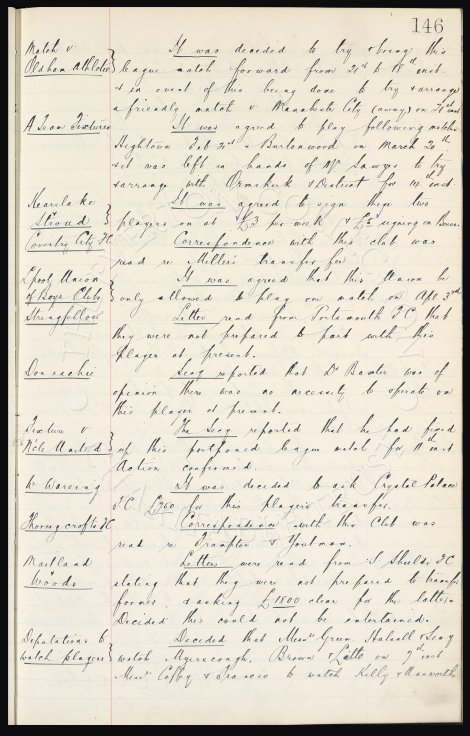 146
Match v It was decided to try & bring this
Oldham Athletic league match forward from 21st to 18th inst.
& in event of this being done to try & arrange
a friendly match v Manchester City (away) on 21st inst
A Team Fixtures It was agreed to play following matches
Hightown Feb 21st & Burtonwood on March 20th
& it was left in hands of Mr Sawyer to try
& arrange with Ormskirk & District for 14th inst.
It was agreed to sign these two
Stroud players on at £3 per week & £5 signing on Bonus.
Coventry City FC Correspondence with this club was
read re Miller's transfer fee
L'pool Union It was agreed that this Union be
of Boys Clubs only allowed to play one match on Apl 3rd
Stringfellow Letter read from Portsmouth FC that
they were not prepared to part with this
player at present.
Donnachie Secy reported that Dr Baxter was of
opinion there was no necessity to operate on
this player at present.
Fixture v The Secy reported that he had fixed
N'tle United up this postponed league match for 11th inst
Action confirmed.
W Wareing It was decided to ask Crystal Palace
F.C. £300 for this player's transfer.
Thorneycrofts FC Correspondence with this Club was
read re Frampton & Youtman.
Maitland Letters were read from S. Shields FC
Woods stating that they were not prepared to transfer
former, & asking £1800 clear for the latter.
Decided this could not be entertained.
Deputations to Decided that Messrs Green, Halsall & Secy
watch players watch Myerscough, Brown & Latte on 7th inst
Messrs Coffey & Francis to watch Kelly &